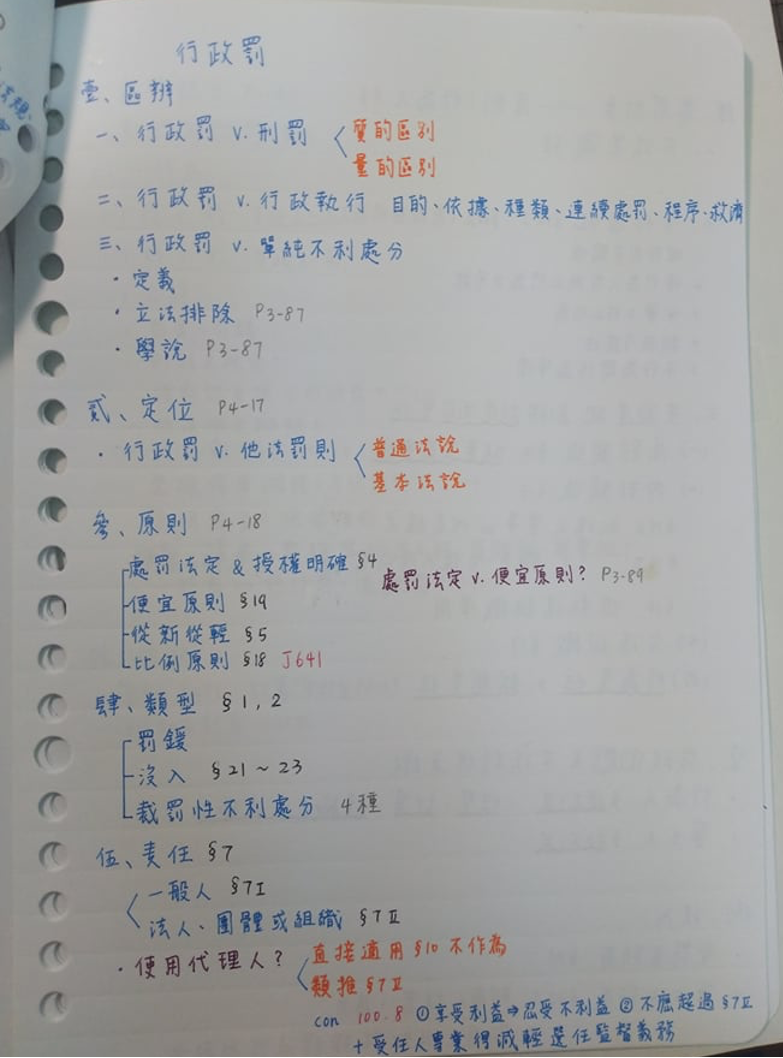 行政罰
壹、區辨
一、行政罰 v. 刑罰 質的區別
量的區別
二、行政罰 v. 行政執行 目的、依據、種類、連續處罰、程序、救濟
三、行政罰 v. 單純不利處分
・定義
・立法排除 P3-87
・學說 P3-87
貳、定位 P4-17
・行政罰 v. 他法罰則 普通法說
基本法說
參、原則 P4-18
處罰法定 & 授權明確 §4
處罰法定 v. 便宜原則? P3-89
便宜原則 §19
從新從輕 §5
比例原則 §18 J641
肆、類型 §1, 2
罰鍰
沒入 §21~23
裁罰性不利處分 4種
伍、責任 §7
一般人 §7I
法人、團體或組織 §7II
・使用代理人? 直接適用§10不作為
類推§7II
con 100.8 ①享受利益⇒忍受不利益 ②不應超過§7II
+受任人專業得減輕選任監督義務